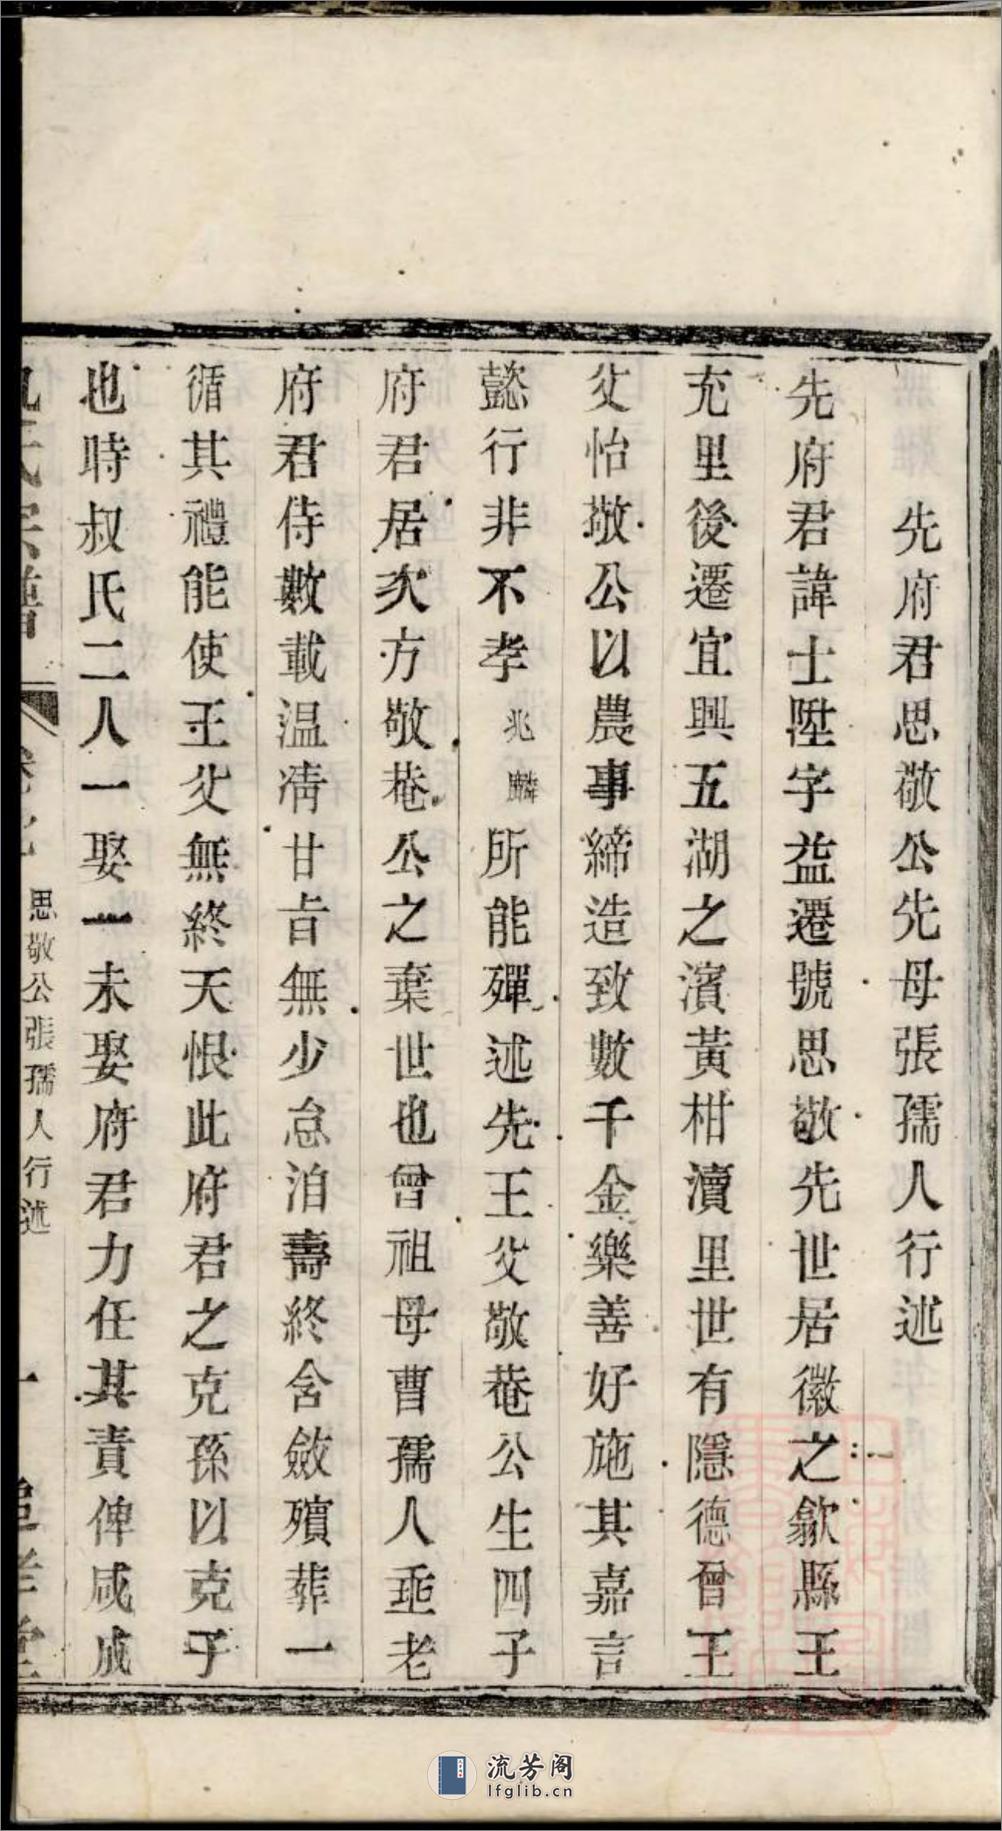 先府君思敬公先母張孺人行述
先府君諱士陞字益遷號思敬先世居徽之歙縣王
充里後遷宜興五湖之濱黃柑瀆里世有隱德曾王
父怡敬公以農事締造致數千金樂善好施其嘉言
懿行非不孝兆麟所能殫述先王父敬菴公生四子
府君居次方敬菴公之棄世也曾祖母曹孺人垂老
府君侍數載温凊甘旨無少怠洎壽終含斂殯葬一
循其禮能使王父無終天恨此府君之克孫以克子
也時叔氏二人一娶一未娶府君力任其責俾咸成
氏宗譜
思敬公張孺人行述
一
孝堂
流芳阁
lfglib.cn